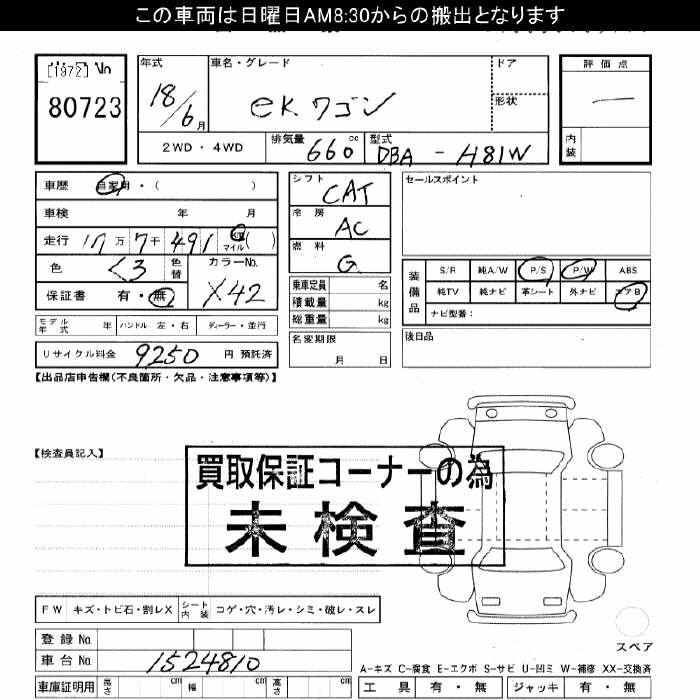 この車両は日曜日AM8:30からの搬出となります
[1972] No
80723
年式 18/6月
車名・グレード eKワゴン
ドア
形状
評価点
内装
2WD・4WD 排気量 660cc 型式 DBA-H81W
車歴 自家用・( )
車検 年 月
走行 17万7千491 km マイル( )
色 くろ 色替 カラーNo. X42
保証書 有・無
モデル年式 年 ハンドル 左・右 ディーラー・並行
リサイクル料金 9250 円 預託済
シフト CAT
冷房 AC
燃料 G
乗車定員 名
積載量 kg
総重量 kg
名変期限
月 日
セールスポイント
装備品
S/R 純A/W P/S P/W ABS
純TV 純ナビ 革シート 外ナビ エアB
ナビ型番:
後日品
【出品店申告欄(不良箇所・欠品・注意事項等)】
【検査員記入】
買取保証コーナーの為
未検査
FW キズ・トビ石・割レX シート内装 コゲ・穴・汚レ・シミ・破レ・スレ
登録No
車台No. 1524810
車庫証明用 長さ cm 幅 cm 高さ cm
スペア
A-キズ C-腐食 E-エクボ S-サビ U-凹ミ W-補修 XX-交換済
工具 有・無 ジャッキ 有・無